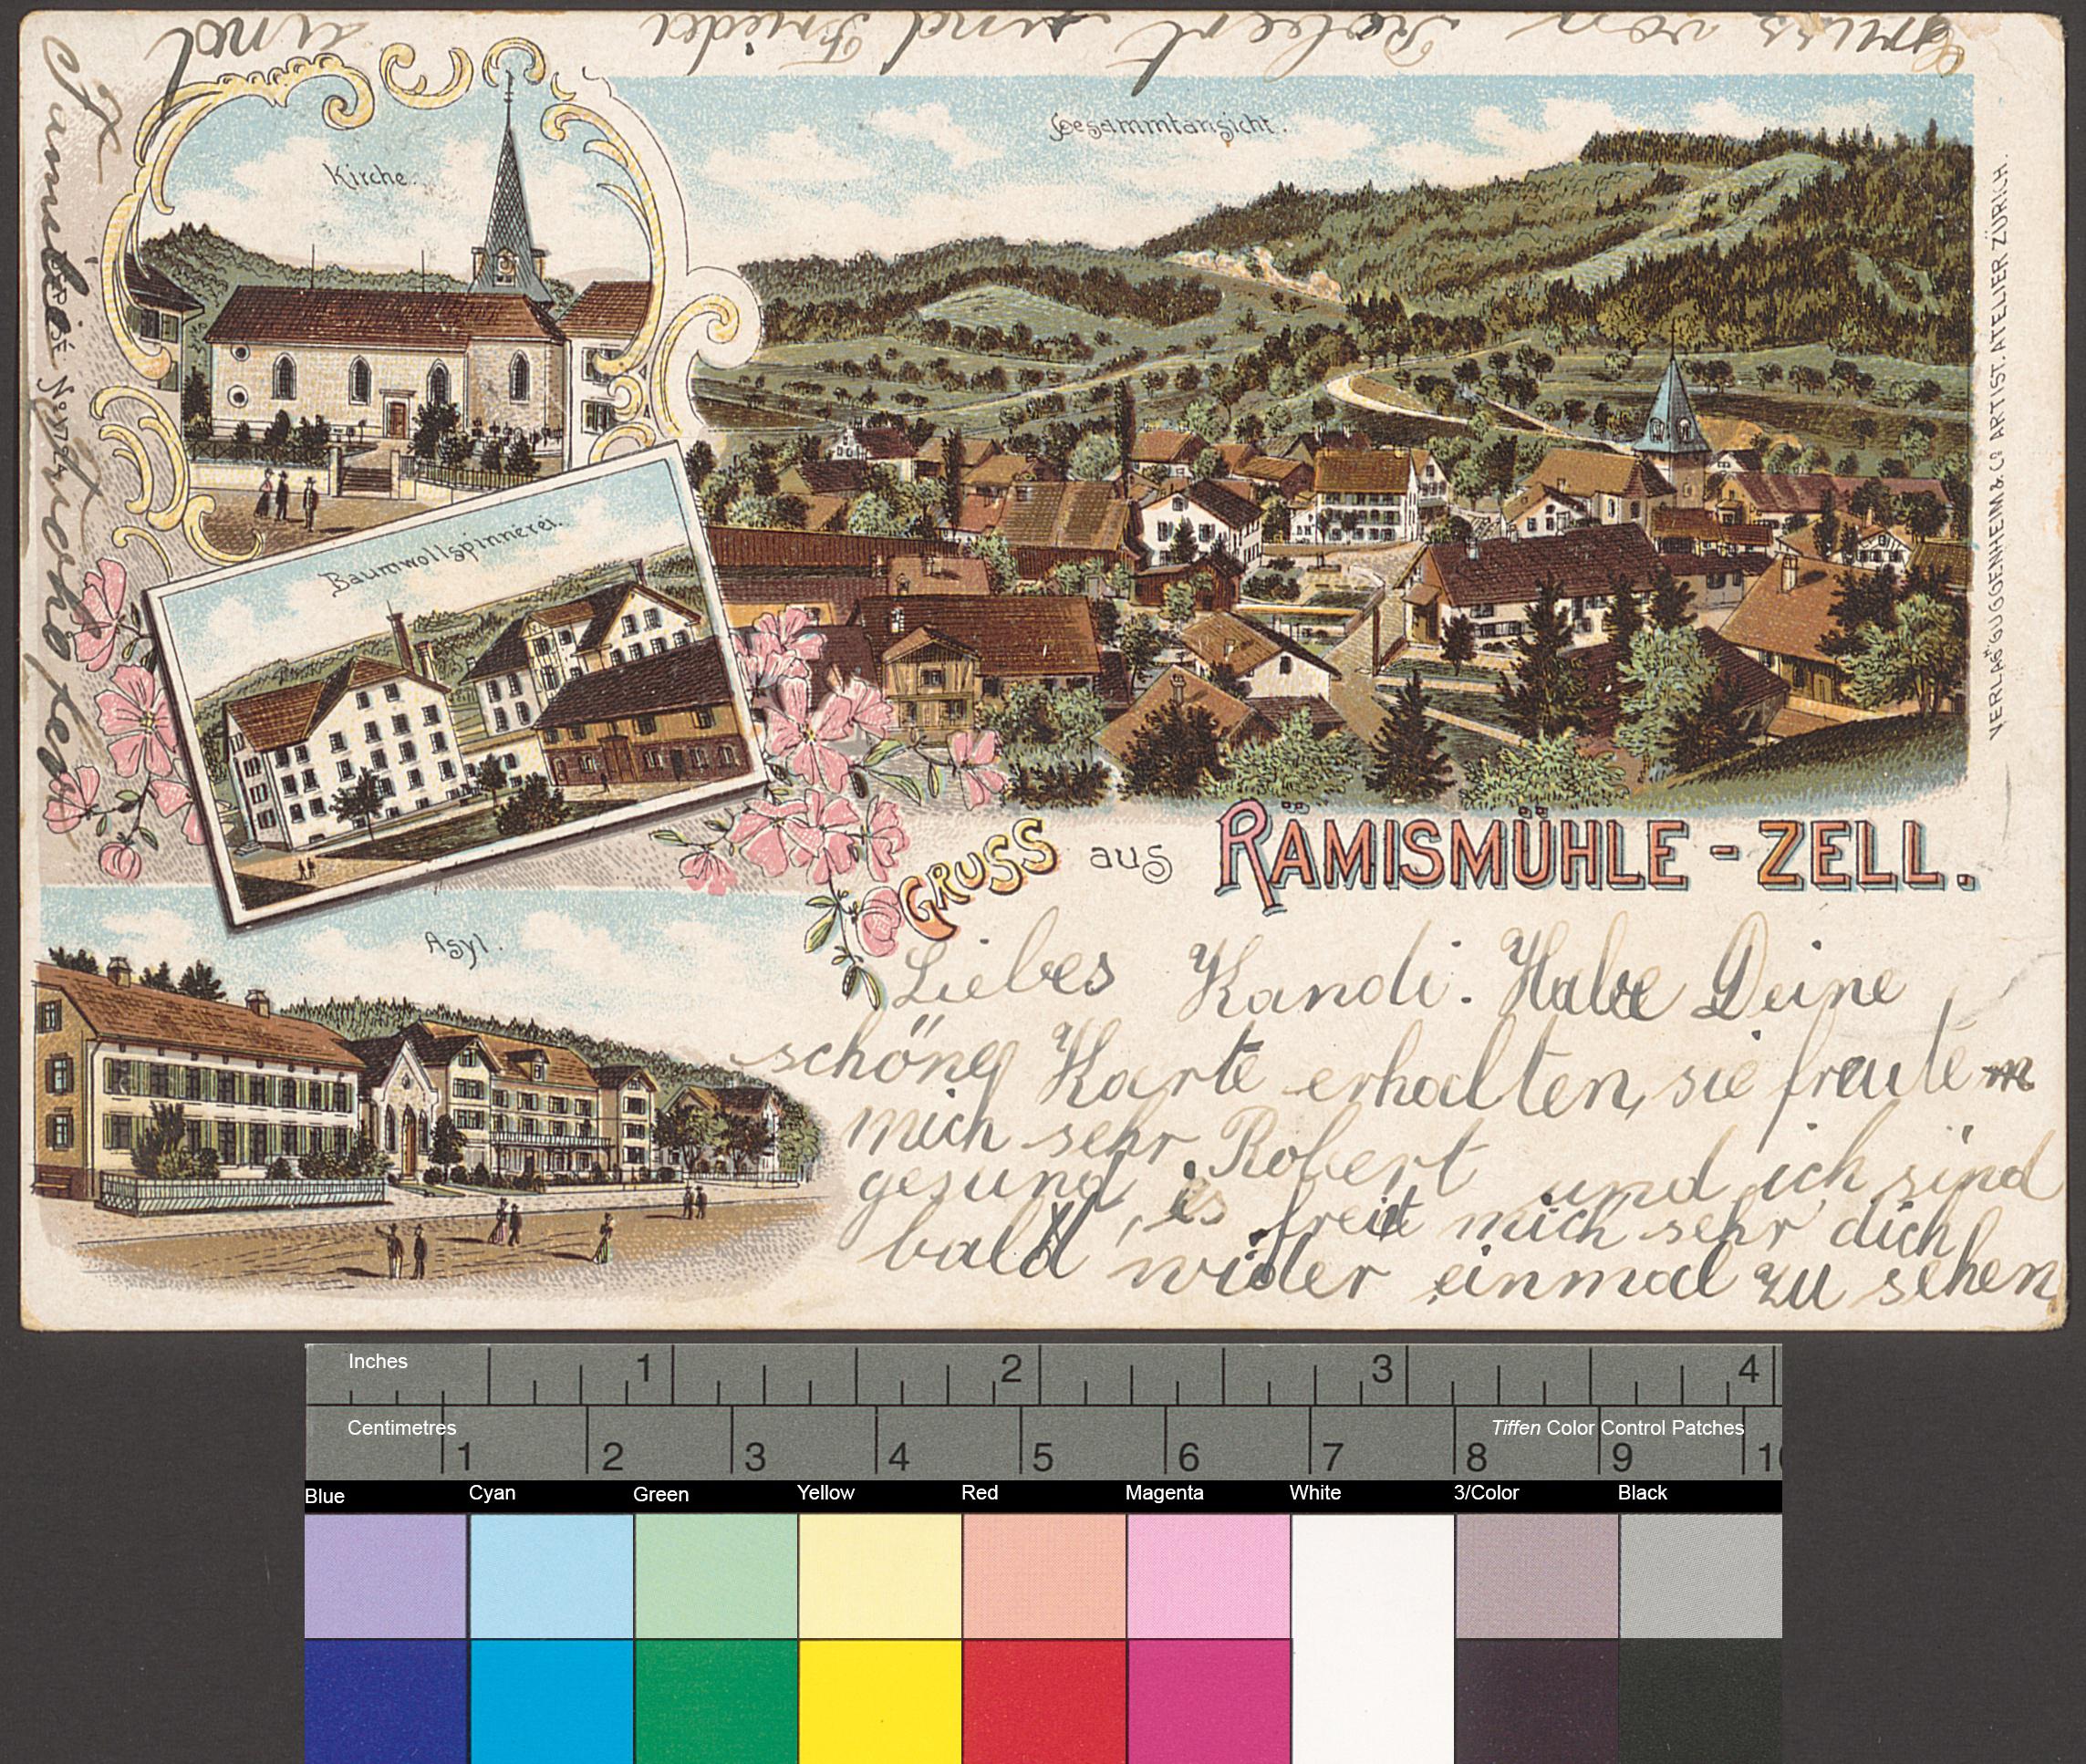 Gruss von Robert und Frieda und
Familie
Kirche.
Gesammtansicht.
Baumwollspinnerei.
Asyl.
DÉPOSÉ No 1794
VERLAG GUGGENHEIM & Co ARTIST. ATELIER ZÜRICH.
GRUSS aus RÄMISMÜHLE - ZELL.
Liebes Kandi. Habe Deine
schöne Karte erhalten, sie freute m
mich sehr Robert und ich sind
gesund, es freit mich sehr dich
bald wider einmal zu sehen
Inches 1 2 3 4
Centimetres 1 2 3 4 5 6 7 8 9 10
Tiffen Color Control Patches
Blue Cyan Green Yellow Red Magenta White 3/Color Black